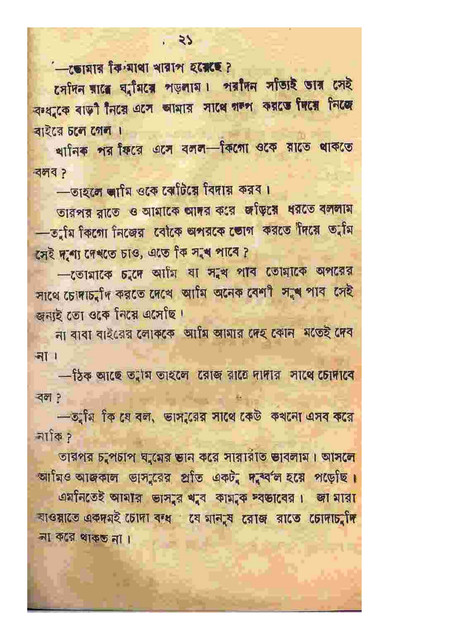 ২১
—তোমার কি মাথা খারাপ হয়েছে ?
সেদিন রাত্রে ঘুমিয়ে পড়লাম । পরদিন সত্যিই তার সেই
বন্ধুকে বাড়ী নিয়ে এসে আমার সাথে গল্প করতে দিয়ে নিজে
বাইরে চলে গেল ।
খানিক পর ফিরে এসে বলল—কিগো ওকে রাতে থাকতে
বলব ?
—তাহলে আমি ওকে ঝেটিয়ে বিদায় করব ।
তারপর রাতে ও আমাকে আদর করে জড়িয়ে ধরতে বললাম
—তুমি কিগো নিজের বৌকে অপরকে ভোগ করতে দিয়ে তুমি
সেই দৃশ্য দেখতে চাও, এতে কি সুখ পাবে ?
—তোমাকে চুদে আমি যা সুখ পাব তোমাকে অপরের
সাথে চোদাচুদি করতে দেখে আমি অনেক বেশী সুখ পাব সেই
জন্যই তো ওকে নিয়ে এসেছি ।
না বাবা বাইরের লোককে আমি আমার দেহ কোন মতেই দেব
না ।
—ঠিক আছে তুমি তাহলে রোজ রাতে দাদার সাথে চোদাবে
বল ?
—তুমি কি যে বল, ভাসুরের সাথে কেউ কখনো এসব করে
নাকি ?
তারপর চুপচাপ ঘুমের ভান করে সারারাত ভাবলাম । আসলে
আমিও আজকাল ভাসুরের প্রতি একটু দুর্ব্বল হয়ে পড়েছি ।
এমনিতেই আমার ভাসুর খুব কামুক স্বভাবের । জা মারা
যাওয়াতে একদমই চোদা বন্ধ যে মানুষ রোজ রাতে চোদাচুদি
না করে থাকত না ।